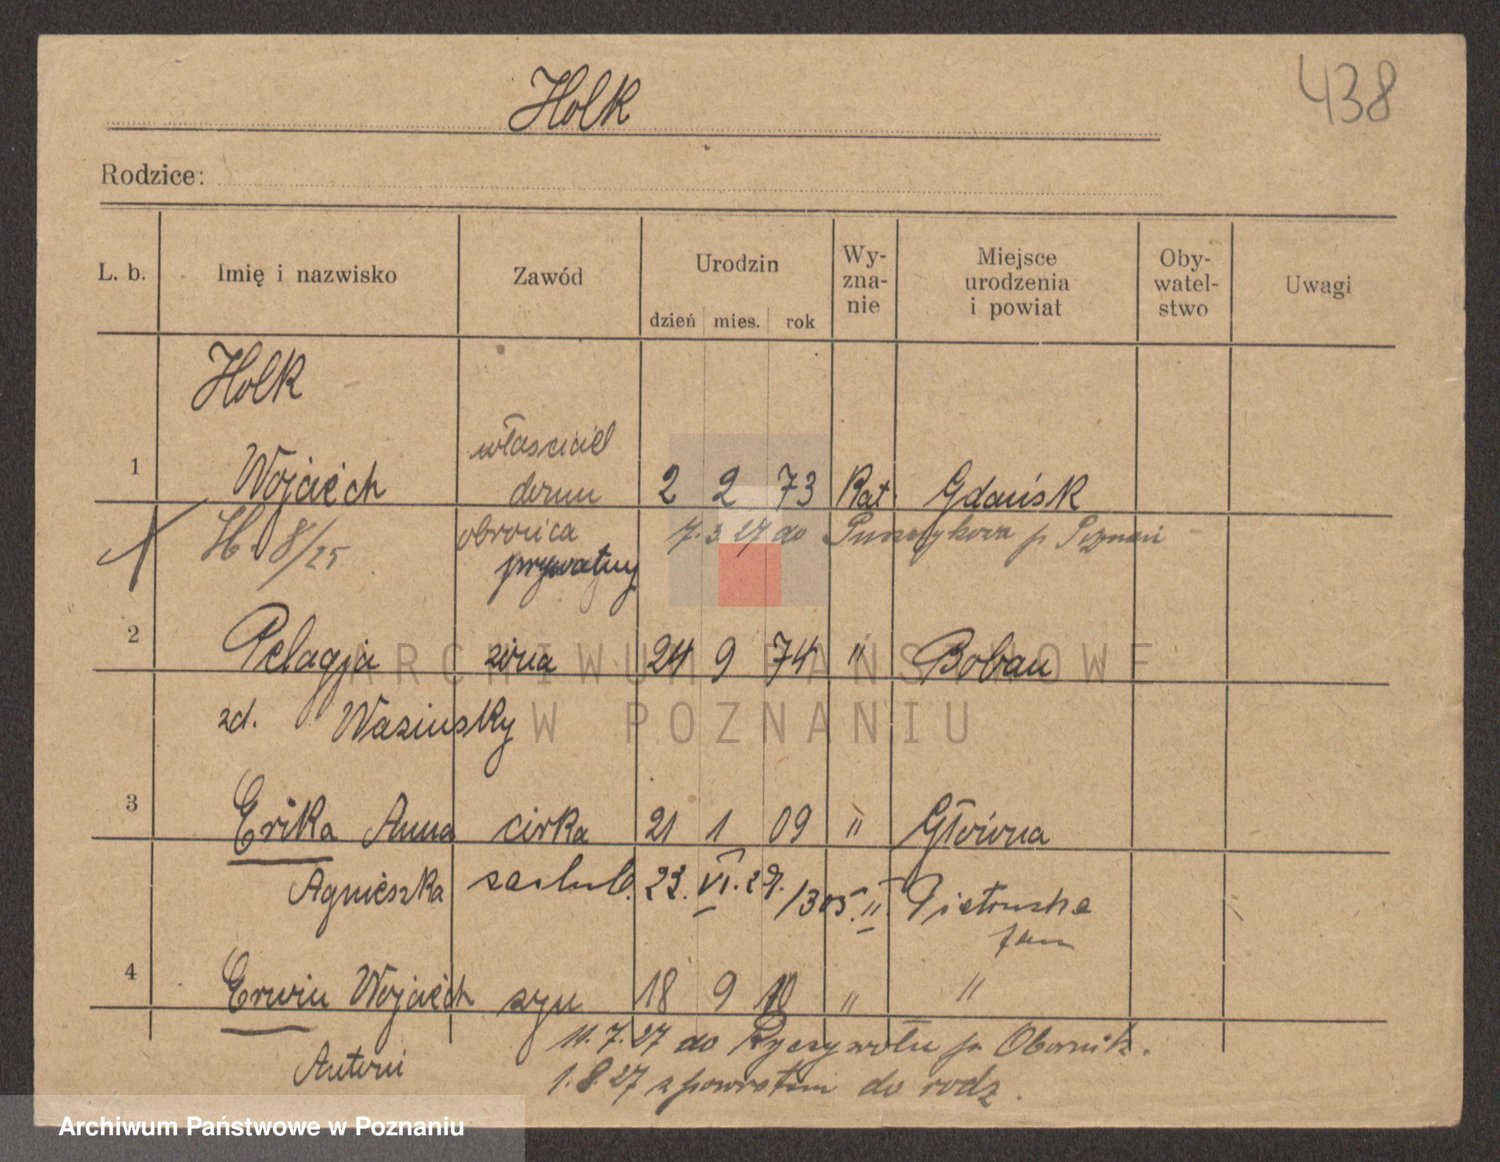 438
Holk
Rodzice:
L. b. Imię i nazwisko Zawód Urodzin dzień mies. rok Wy-zna-nie Miejsce urodzenia i powiat Oby-watel-stwo Uwagi
Holk
właściciel
1 Wojciech domu 2 2 73 Kat. Gdańsk
H. 8/25 obrońca 7.3.27 do Puszczykowa p. Poznań
prywatny
2 Pelagja żona 24 9 74 " Bobau
zd. Wasinsky
3 Erika Anna córka 21 1 09 " Główna
Agnieszka zaślub. 23. VI. 29. /305. II. Pietruska
Jan
4 Erwin Wojciech syn 18 9 10 " "
11.7.27 do Ryczywołu p. Obornik.
Antoni
1.8.27 z powrotem do rodz.
ARCHIWUM PAŃSTWOWE
W POZNANIU
Archiwum Państwowe w Poznaniu